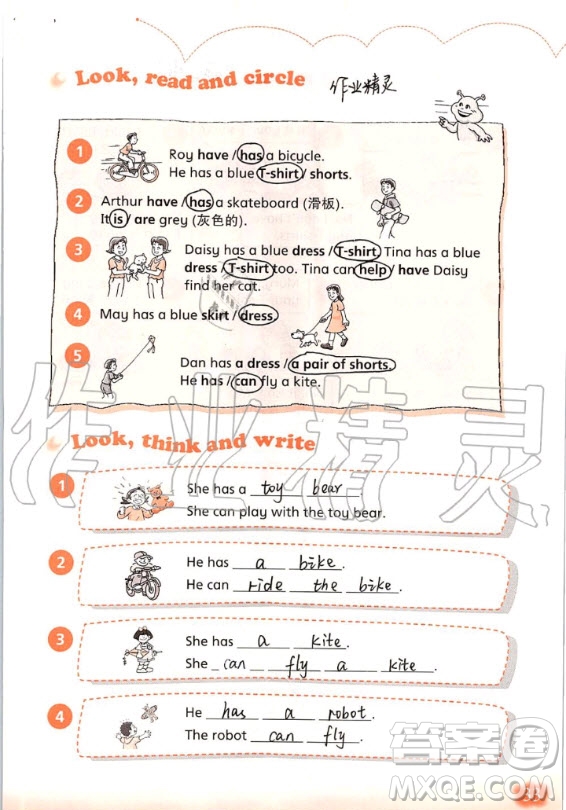 Look, read and circle 作业精灵
1 Roy have / has a bicycle.
He has a blue T-shirt / shorts.
2 Arthur have / has a skateboard (滑板).
It is / are grey (灰色的).
3 Daisy has a blue dress / T-shirt. Tina has a blue
dress / T-shirt too. Tina can help / have Daisy
find her cat.
4 May has a blue skirt / dress.
5 Dan has a dress / a pair of shorts.
He has / can fly a kite.
作业精灵
Look, think and write
1 She has a toy bear.
She can play with the toy bear.
2 He has a bike.
He can ride the bike.
3 She has a kite.
She can fly a kite.
4 He has a robot.
The robot can fly.
答案圈
MXQE.COM